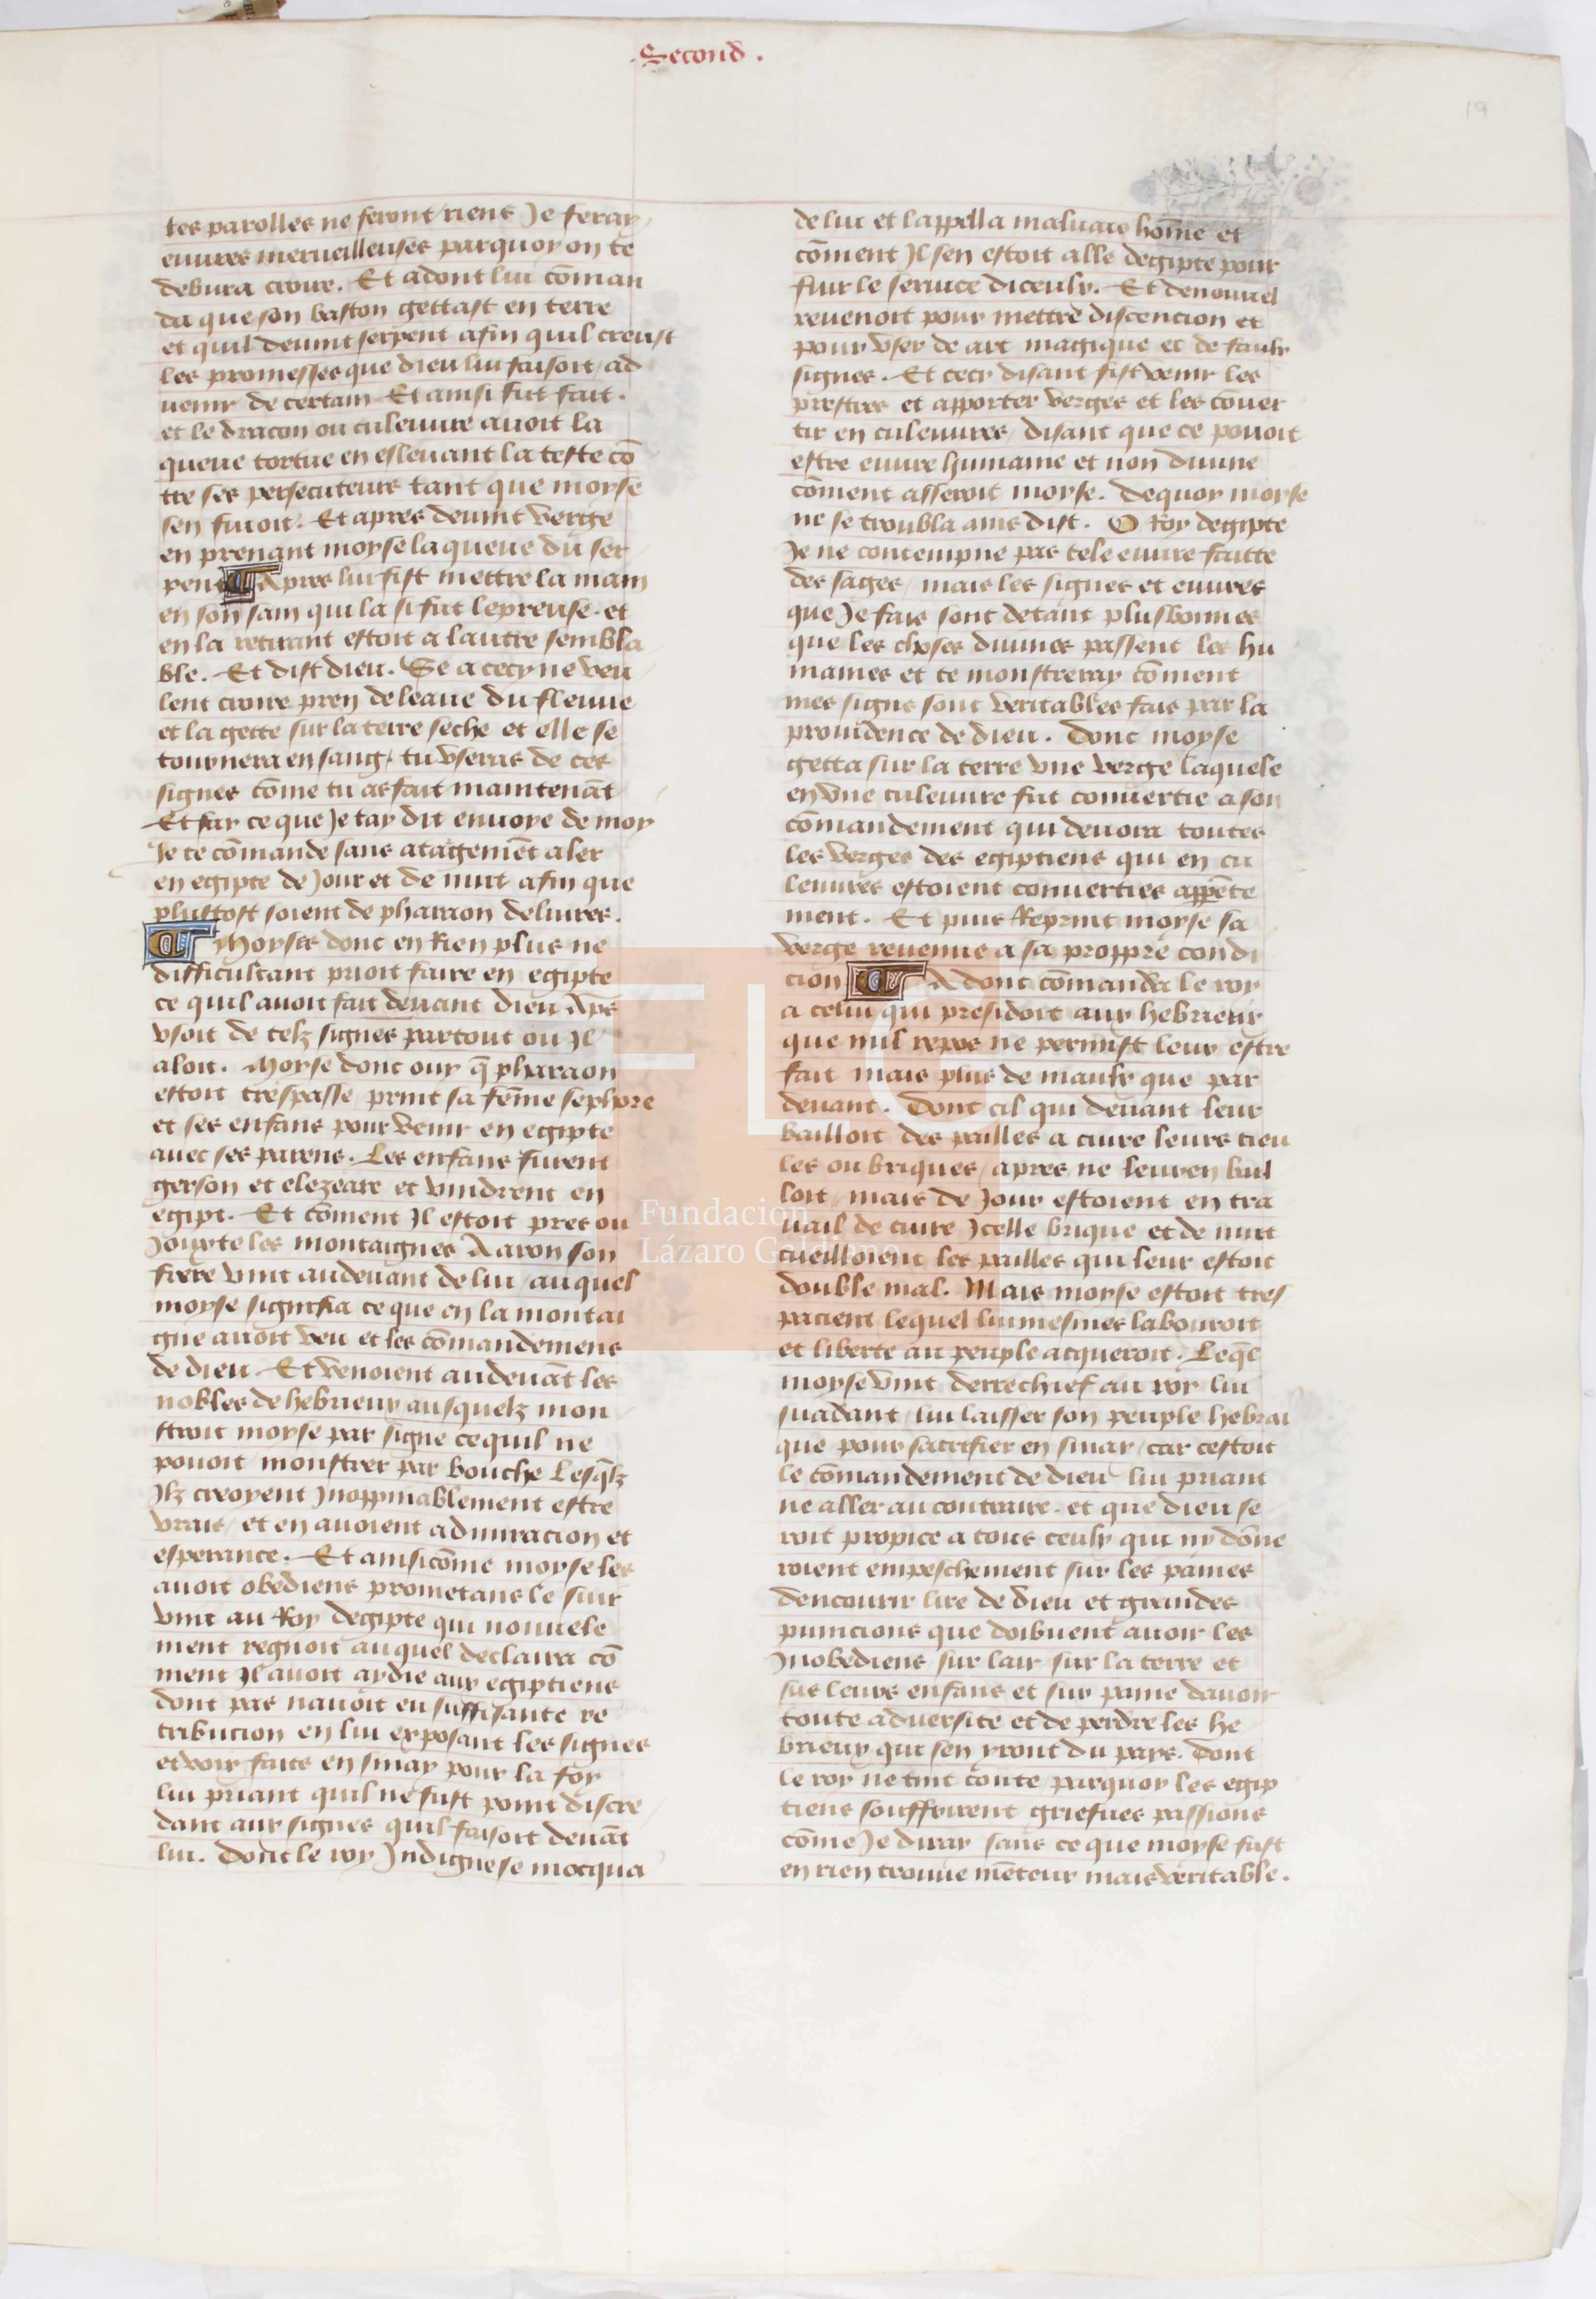 .Second.
19
tes parolles ne feront riens Je feray
euures merueilleuses parquoy on te
debura croire. Et adont lui cōman
da que son baston gettast en terre
et quil deuint serpent afin quil creust
les promesses que dieu lui faisoit ad
uenir de certain Et ainsi fut fait.
et le dracon ou culeuure auoit la
queue tortue en esleuant la teste cō
tre ses persecuteurs tant que moyse
sen fuioit. Et apres deuint verge
en prenant moyse la queue du ser
pent Apres lui fist mettre la main
en son sain qui la si fut lepreuse. et
en la retirant estoit a lautre sembla
ble. Et dist dieu. Se a cecy ne veu
lent croire pren de leaue du fleuue
et la gette sur la terre seche et elle se
tournera en sang, tu vseras de ces
signes cōme tu as fait maintenāt
Et fay ce que Je tay dit enuoye de moy
Je te cōmande sans atagemēt aler
en egipte de Jour et de nuit afin que
plustost soient de pharaon deliures.
Moyses donc en Rien plus ne
difficultant prioit faire en egipte
ce quil auoit fait deuant dieu Aps
vsoit de telz signes partout ou Jl
aloit. Moyse donc ouy q̄ pharaon
estoit trespasse print sa fēme sephore
et ses enfans pour venir en egipte
auec ses parens. Les enfans furent
gerson et elezeare et vindrent en
egipt. Et cōment Jl estoit pres ou
Jouxte les montaignes Aaron son
frere vint audeuant de lui auquel
moyse signifia ce que en la montai
gne auoit veu et les cōmandemens
de dieu Et venoient audeuāt les
nobles de hebrieux ausquelz mon
stroit moyse par signe ce quil ne
pouoit monstrer par bouche Lesq̄lz
Jlz creoyent Jnoppinablement estre
vrais et en auoient admiracion et
esperance. Et ainsi cōme moyse les
auoit obediens prometans le suir
vint au Roy degipte qui nouuele
ment regnoit auquel declaira cō
ment Jl auoit aydie aux egiptiens
dont pas nauoit eu suffisante re
tribucion en lui exposant les signes
et voix faits en sinay pour la foy
lui priant quil ne fust point discre
dant aux signes quil faisoit deuāt
lui. Dont le roy Jndigne se mocqua
de lui et lappella maluais hōme et
cōment Jl sen estoit alle degipte pour
fuir le seruice diceulx. Et de nouuel
reuenoit pour mettre discencion et
pour vser de art magique et de faulx
signes. Et cecy disant fist venir les
prestres et apporter verges et les couer
tir en culeuures, disant que ce pouoit
estre euure humaine et non diuine
cōment asseroit moyse. Dequoy moyse
ne se troubla ains dist. O Roy degipte
Je ne contempne pas tele euure faitte
des sages, mais les signes et euures
que Je fais sont detant plus bonnes
que les choses diuines passent les hu
maines et te monstreray cōment
mes signe sont veritables fais par la
prouidence de dieu. Donc moyse
getta sur la terre vne verge laquele
en vne culeuure fut conuertie a son
cōmandement qui deuora toutes
les verges des egiptiens qui en cu
leuures estoient conuerties appēte
ment. Et puis Reprint moyse sa
verge reuenue a sa proppre condi
cion Adont cōmanda le roy
a celui qui presidoit aux hebrieux
que nul repos ne permist leur estre
fait mais plus de maulx que par
deuant. Dont cil qui deuant leur
bailloit des pailles a cuire leurs tieu
les ou briques, apres ne leur en bail
loit mais de Jour estoient en tra
uail de cuire Jcelle brique et de nuit
cueilloient les pailles qui leur estoit
double mal. Mais moyse estoit tres
pacient lequel lui mesmes labouroit
et liberte au peuple acqueroit. Leq̄l
moyse vint derrechief au roy lui
suadant lui laisser son peuple hebrai
que pour sacrifier en sinay, car cestoit
le cōmandement de dieu lui priant
ne aller au contraire. et que dieu se
roit propice a tous ceulx qui ny dōne
roient empeschement sur les paines
dencourir lire de dieu et grandes
punicions que doibuent auoir les
Jnobediens sur lair sur la terre et
sus leurs enfans et sur paine dauoir
toute aduersite et de perdre les he
brieux qui sen yront du pays. Dont
le roy ne tint conte parquoy les egip
tiens souffrirent griefues passions
cōme Je diray sans ce que moyse fust
en rien trouue mēteur mais veritable.
Fundación
Lázaro Galdiano